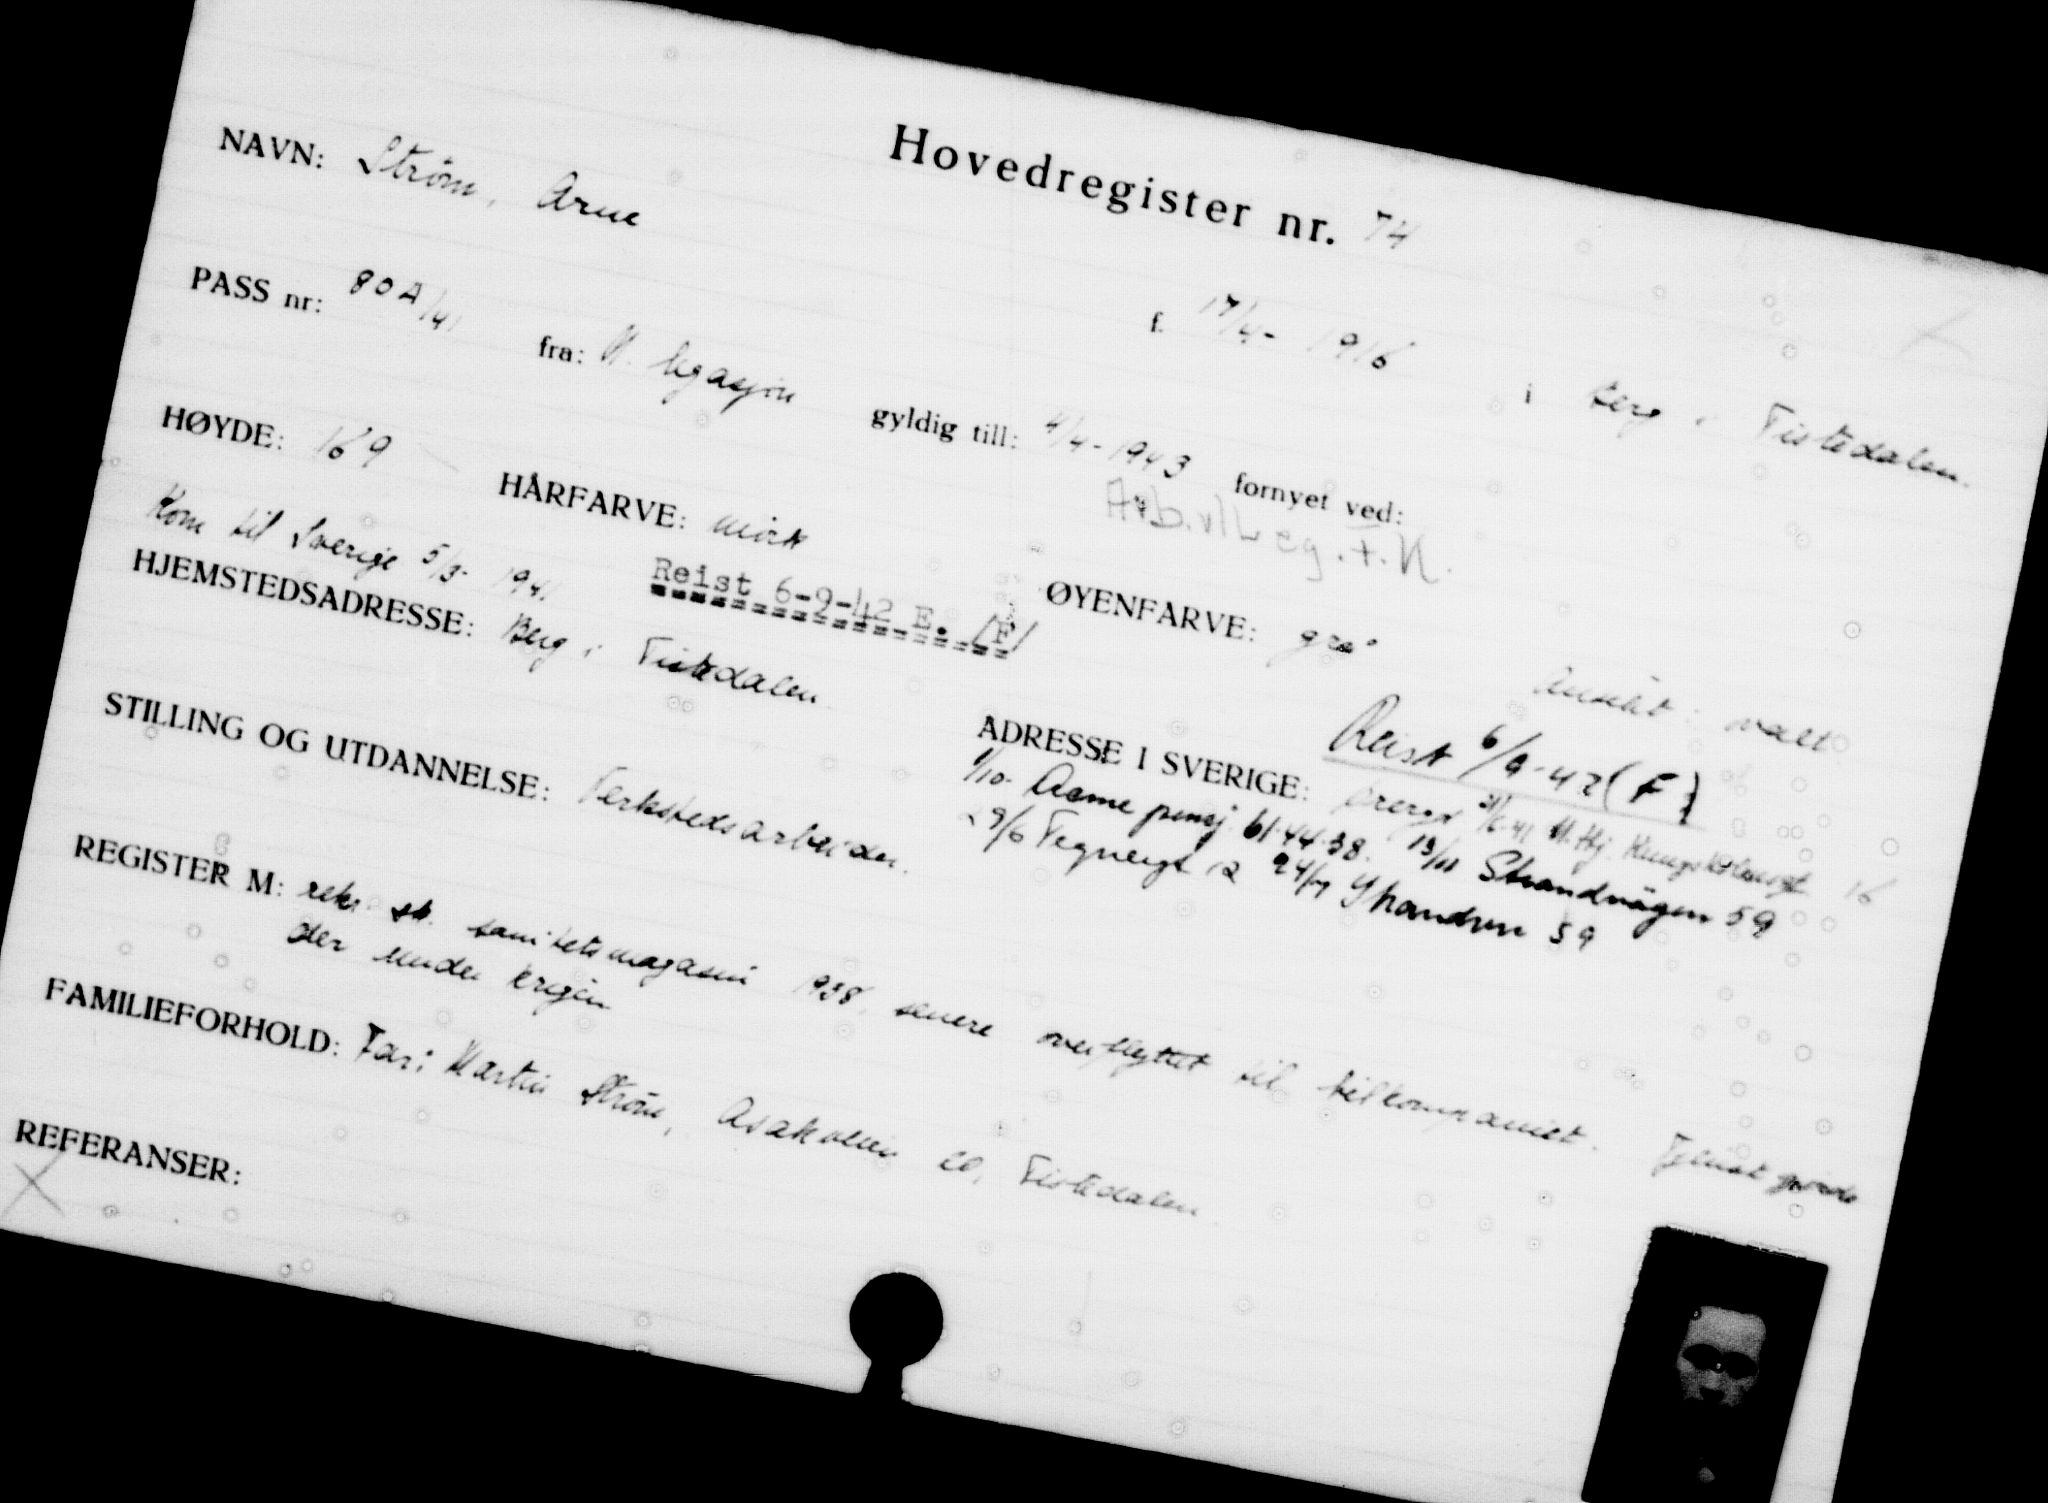 Hovedregister nr. 74
NAVN: Strøm, Arne f. 17/4- 1916 i Berg i Tistedalen.
PASS nr: 80A/41 fra: N. legasjon gyldig till: 4/4-1943 fornyet ved:
Arb. v/Leg. F.K.
HØYDE: 169 HÅRFARVE: mörk ØYENFARVE: grå Ansikt: ovalt
Kom til Sverige 5/3- 1941 Reist 6-9-42 E. /F/
Reist 6/9-42 (F)
HJEMSTEDSADRESSE: Berg i Tistedalen ADRESSE I SVERIGE: 21/6-41 N. Hj. Kungsholmsgt 16
1/10- Acme pensj. 61.44.38. 13/11 Strandvägen 59
29/6 Tegnergt 12 24/7 Strandvn 59
STILLING OG UTDANNELSE: Verkstedsarbeider.
REGISTER M: rekr. sk. sanitetsmagasin 1938, senere overflyttet til kompaniet. Tjenestgjorde
der under krigen
FAMILIEFORHOLD: Far: Martin Strøm, Asakveien 20, Tistedalen.
REFERANSER: